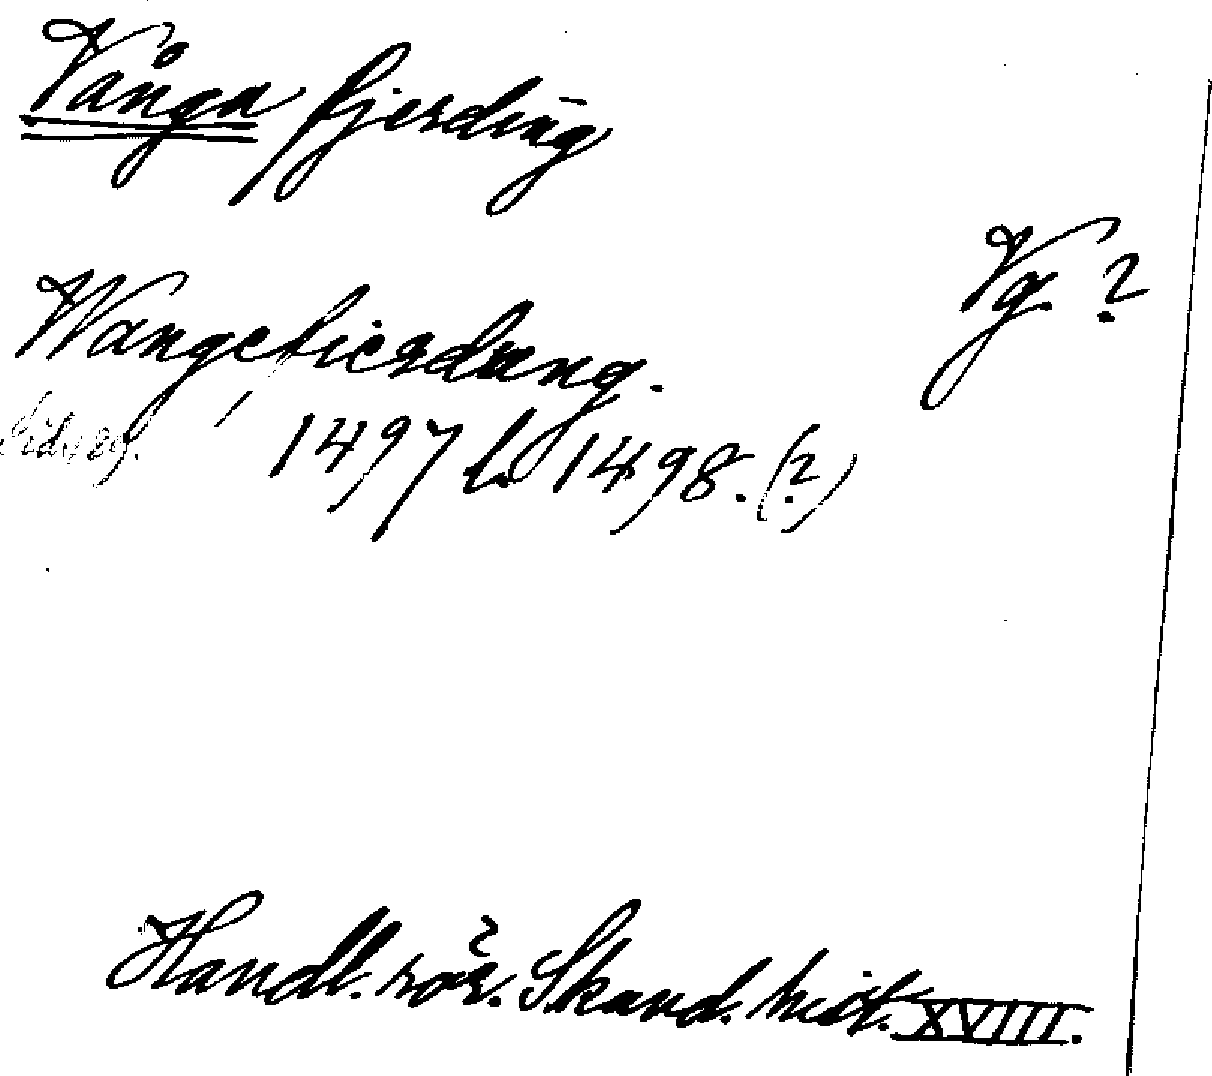 Vånga fjerding
Vg. ?
Wangefierdung.
Sid. 189.
1497 l. 1498. (?)
Handl. rör. Skand. hist. XVIII.